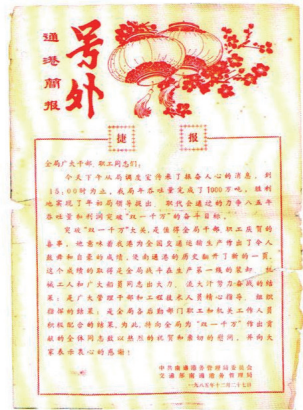 通港简报
号外
捷报
全局广大干部、职工同志们：
今天下午从局调度室传来了振奋人心的消息，到
15:00时为止，我局年吞吐量完成了1000万吨，胜利
地实现了年初局领导提出、职代会通过的力争八五年
吞吐量和利润突破"双一千万"的奋斗目标。
突破"双一千万"大关，是值得全局干部、职工庆贺的
喜事，他意味着我港为全国交通运输生产作出了令人
鼓舞和自豪的成绩，是南通港的历史翻开了新的一页。
这个成绩的取得是全局战斗在生产第一线的装卸、机
械工人和广大船员同志出大力、流大汗努力奋战的结
果；是广大管理干部和工程技术人员精心指导、组织
指挥的结果，是全局各后勤部门职工和机关工作人员
积极配合的结果。为此，特向全局为"双一千万"作出贡
献的全体同志致以热烈的祝贺和亲切的慰问，并向大
家表示衷心的感谢！
中共南通港务管理局委员会
交通部南通港务管理局
一九八五年十二月二十七日